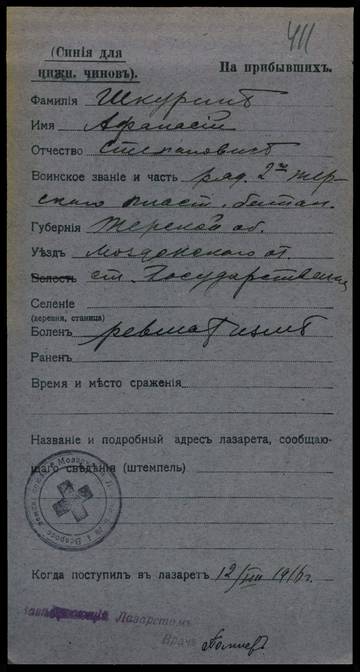 411
(Синія для
нижн. чиновъ).
На прибывшихъ.
Фамилія Шкуринъ
Имя Афанасій
Отчество Степановичъ
Воинское званіе и часть ряд. 2го Тер-
скаго пласт. батал.
Губернія Терской об.
Уѣздъ Моздокскаго от.
Волость ст. Государственная
Селеніе
(деревня, станица)
Боленъ ревматизмъ
Раненъ
Время и мѣсто сраженія
Названіе и подробный адресъ лазарета, сообщаю-
щаго свѣдѣнія (штемпель)
Когда поступилъ въ лазаретъ 12/VIII 1916 г.
Лазаретомъ
Врачъ